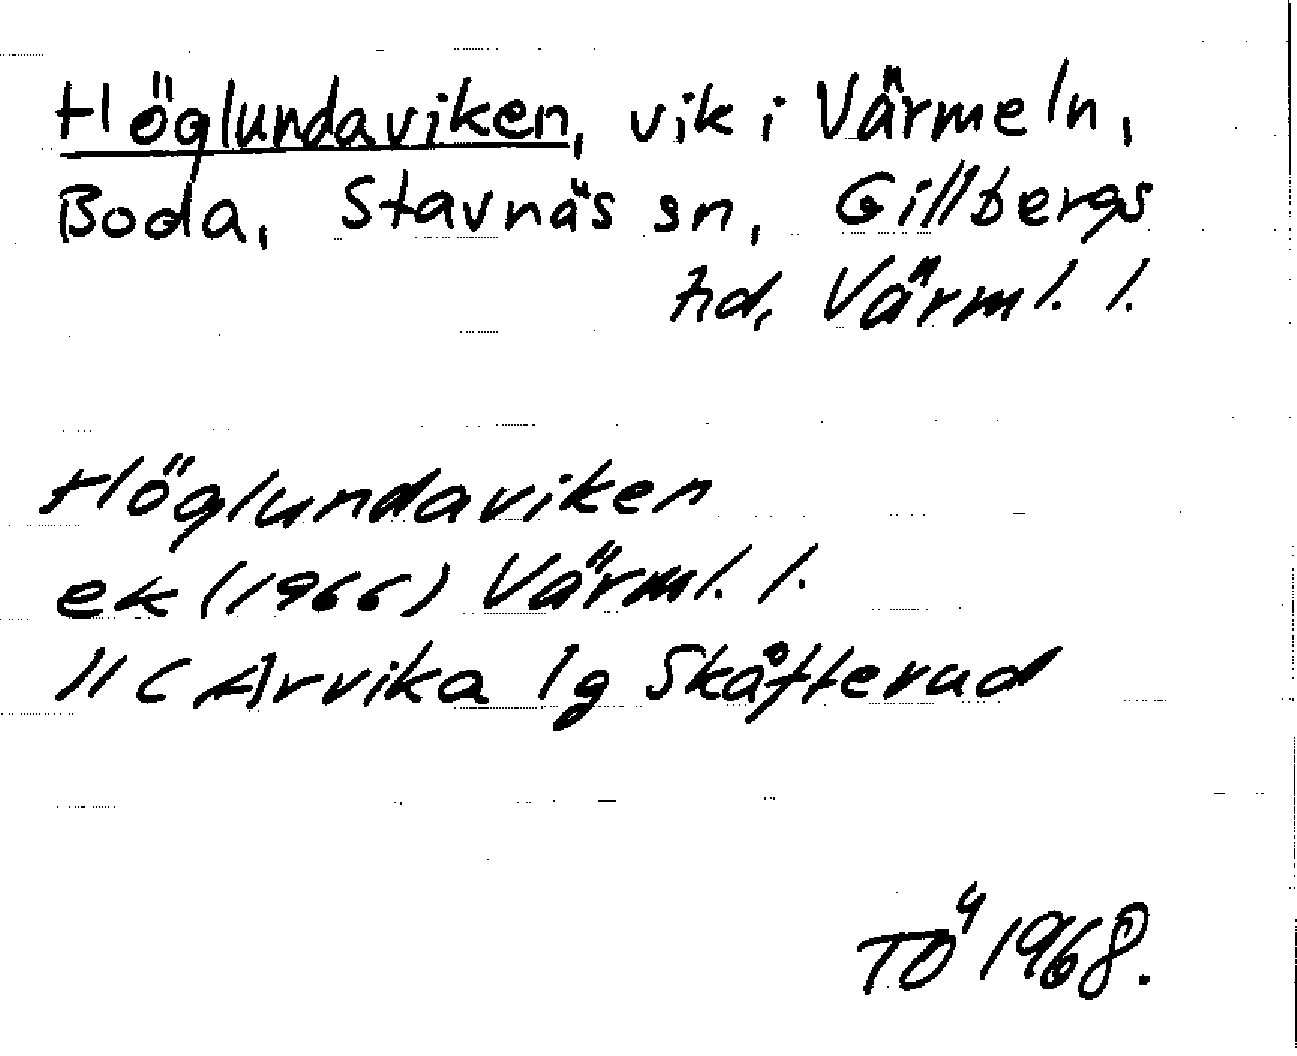 Höglundaviken, vik i Värmeln,
Boda, Stavnäs sn, Gillbergs
hd, Värml. l.
Höglundaviken
ek (1966) Värml. l.
11 C Arvika 1g Skåfterud
TÖ 1968.